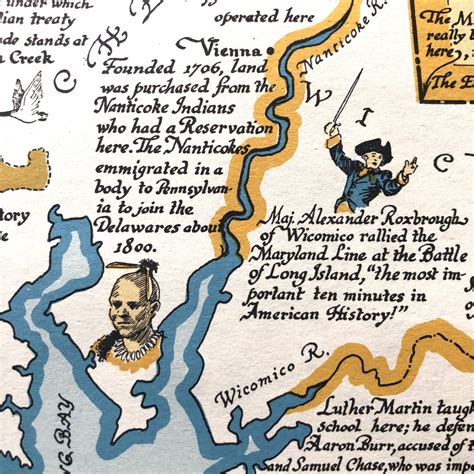 under which
dian treaty
de stands at
n Creek
operated here
Vienna
Founded 1706, land
was purchased from the
Nanticoke Indians
who had a Reservation
here. The Nanticokes
emmigrated in a
body to Pennsylvan-
ia to join the
Delawares about
1800.
Nanticoke R.
The M
really b
here,
The E
W I C
Maj. Alexander Roxbrough
of Wicomico rallied the
Maryland Line at the Battle
of Long Island, "the most im-
portant ten minutes in
American History!"
story
Wicomico R.
G. BAY
Luther Martin taugh
school here; he defen
Aaron Burr, accused of t
and Samuel Chase, who was imp